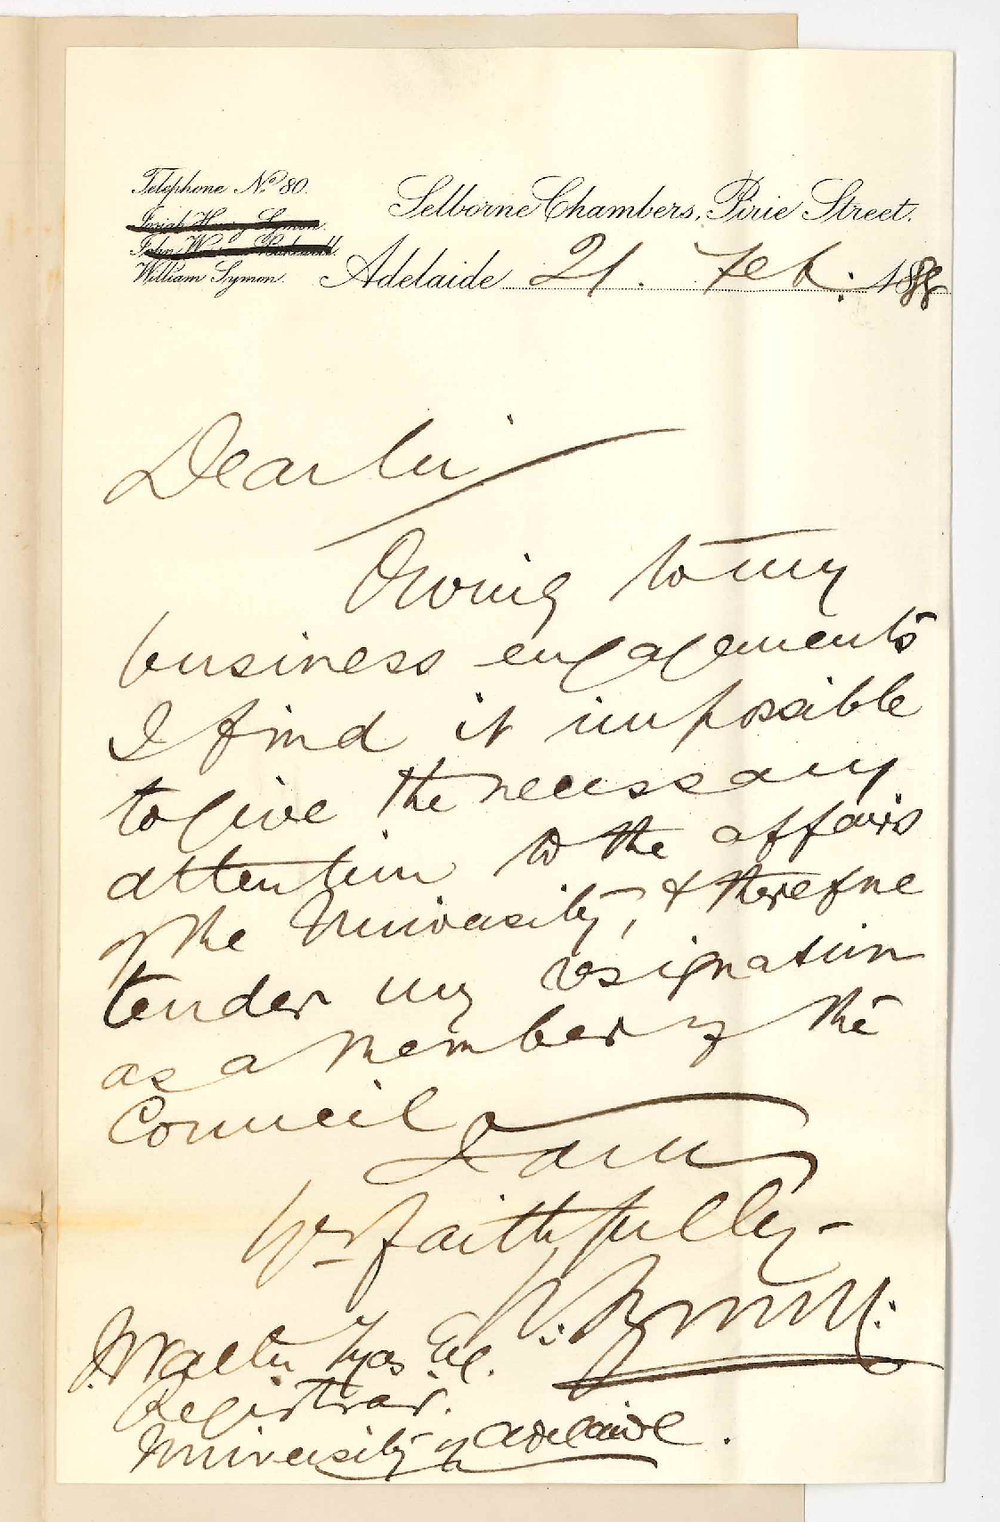 Telephone No. 80.
Josiah Henry Symon.
John W
William Symon.
Selborne Chambers, Pirie Street.
Adelaide 21. Feb: 1888
Dear Sir
Owing to my
business engagements
I find it impossible
to give the necessary
attention to the affairs
of the University, & therefore
tender my resignation
as a Member of the
Council
I am
Yrs faithfully –
W: Symon:
J. Walter Tyas Esq.
Registrar.
University of Adelaide.